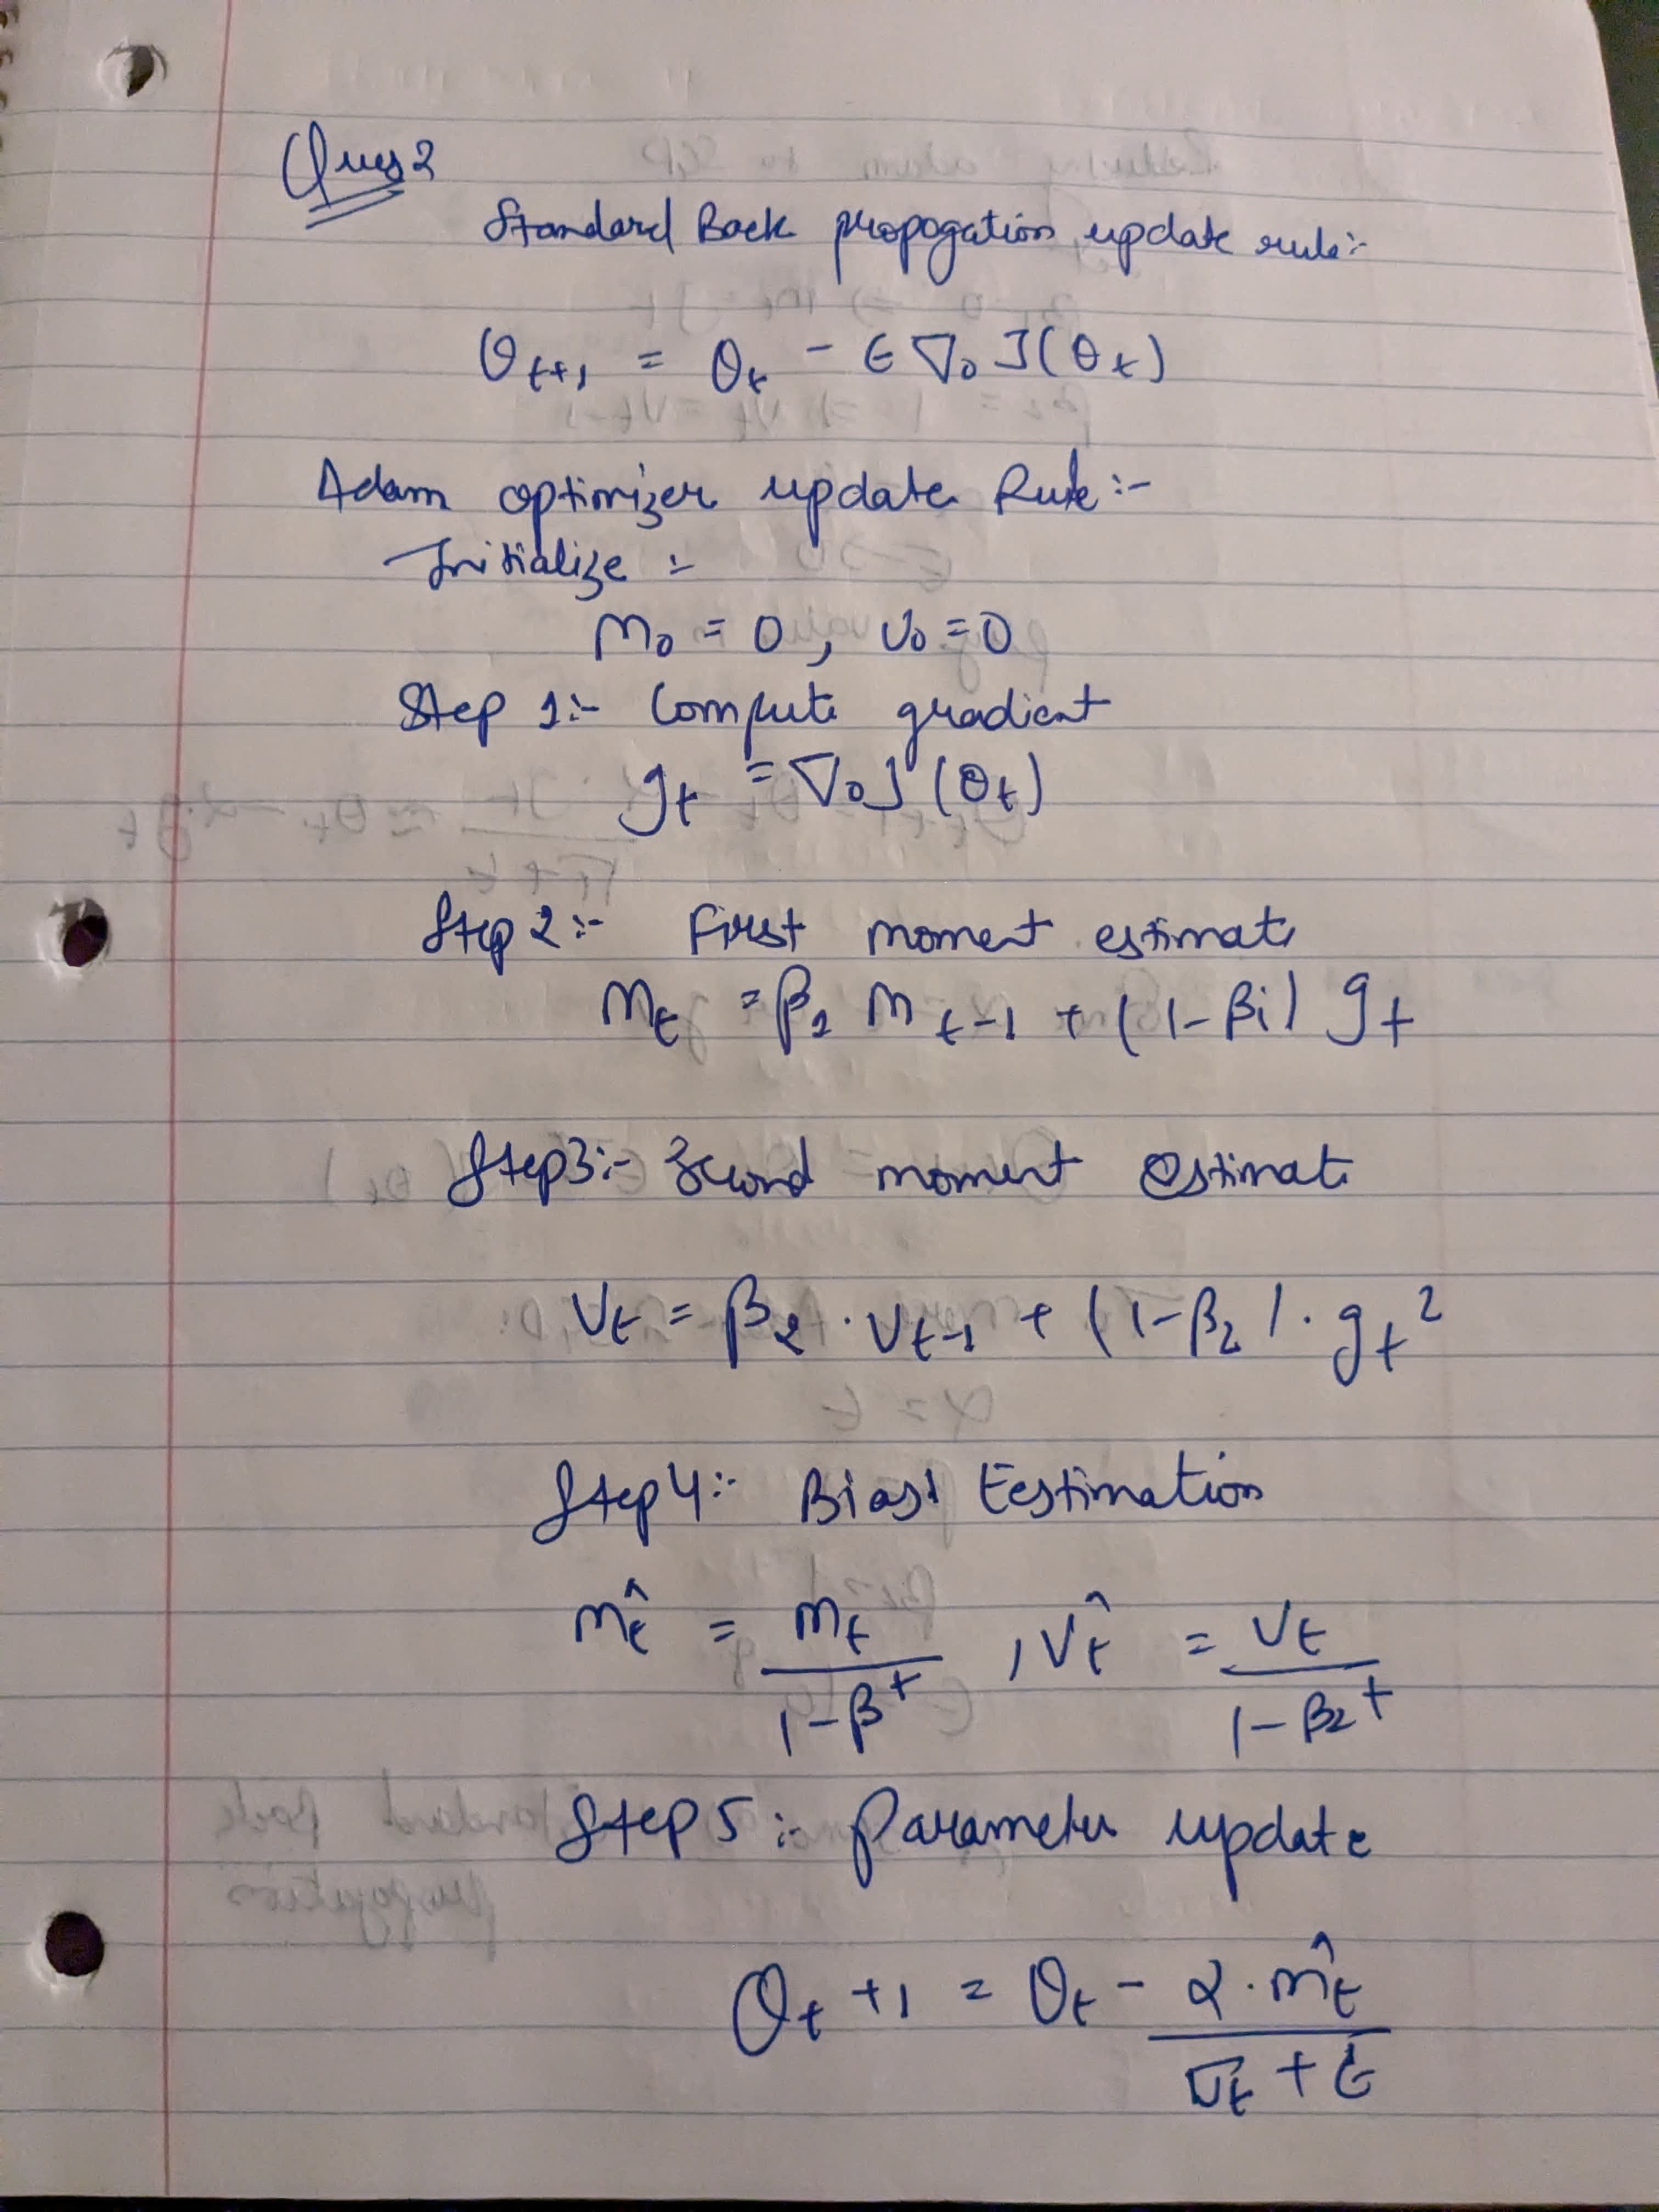 Ques 2
Standard Back propogation update rule:-
θt+1 = θt - ϵ ∇θ J(θt)
Adam optimizer update Rule:-
Initialize :-
m0 = 0, v0 = 0
Step 1:- Compute gradient
gt = ∇θ J(θt)
Step 2:- First moment estimate
mt = β1 mt-1 + (1-β1) gt
Step3:- Second moment estimate
Vt = β2 · Vt-1 + (1-β2) · gt²
Step4:- Bias Eestimation
m̂t = mt / 1-β^t , V̂t = Vt / 1-β2^t
Step 5:- Parameter update
θt+1 = θt - α · m̂t / √Vt + ϵ